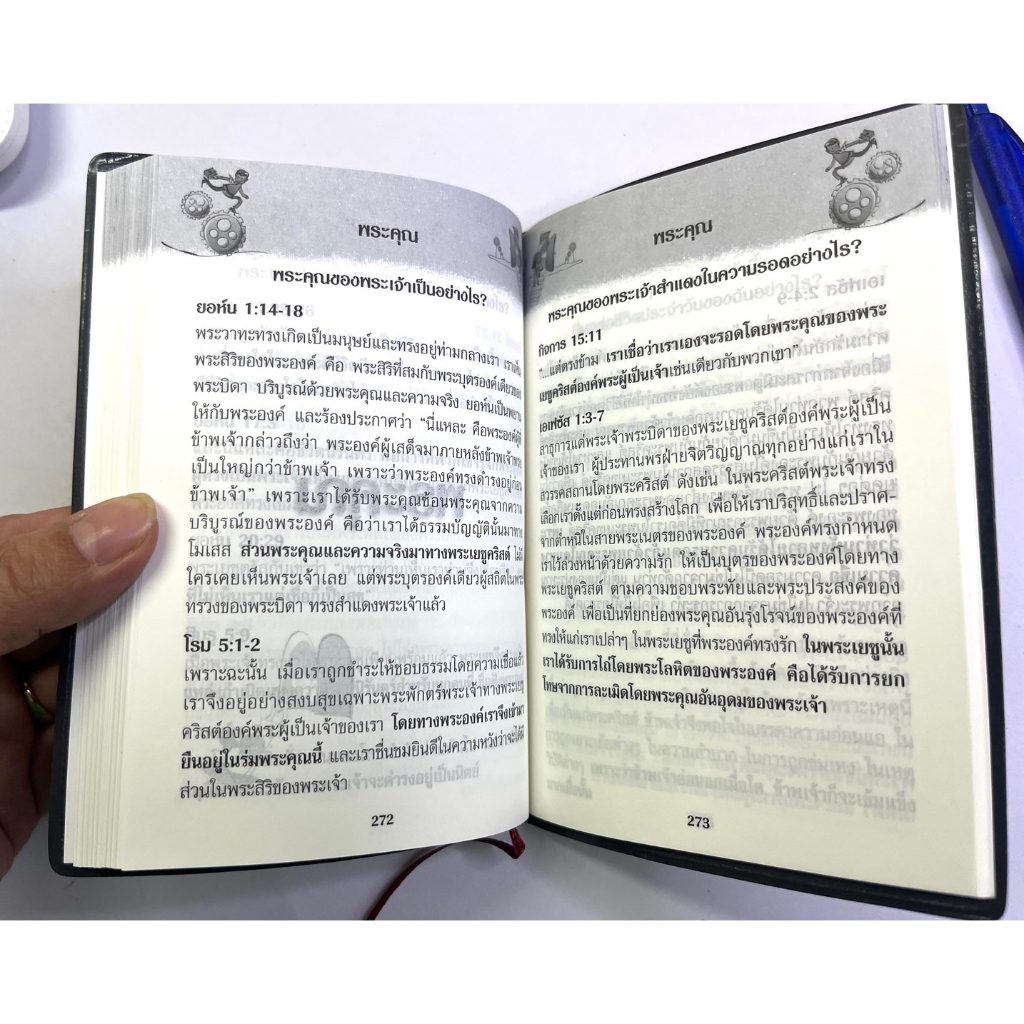 พระคุณ
พระคุณของพระเจ้าเป็นอย่างไร?
ยอห์น 1:14-18
พระวาทะทรงเกิดเป็นมนุษย์และทรงอยู่ท่ามกลางเรา เราเห็น
พระสิริของพระองค์ คือ พระสิริที่สมกับพระบุตรองค์เดียวของ
พระบิดา บริบูรณ์ด้วยพระคุณและความจริง ยอห์นเป็นพยาน
ให้กับพระองค์ และร้องประกาศว่า “นี่แหละ คือพระองค์ผู้ที่
ข้าพเจ้ากล่าวถึงว่า พระองค์ผู้เสด็จมาภายหลังข้าพเจ้าทรง
เป็นใหญ่กว่าข้าพเจ้า เพราะว่าพระองค์ทรงดำรงอยู่ก่อน
ข้าพเจ้า” เพราะเราได้รับพระคุณซ้อนพระคุณจากความ
บริบูรณ์ของพระองค์ คือว่าเราได้ธรรมบัญญัตินั้นมาทาง
โมเสส ส่วนพระคุณและความจริงมาทางพระเยซูคริสต์ ไม่มี
ใครเคยเห็นพระเจ้าเลย แต่พระบุตรองค์เดียวผู้สถิตในพระ
ทรวงของพระบิดา ทรงสำแดงพระเจ้าแล้ว
โรม 5:1-2
เพราะฉะนั้น เมื่อเราถูกชำระให้ชอบธรรมโดยความเชื่อแล้ว
เราจึงอยู่อย่างสงบสุขเฉพาะพระพักตร์พระเจ้าทางพระเยซู
คริสต์องค์พระผู้เป็นเจ้าของเรา โดยทางพระองค์เราจึงเข้ามา
ยืนอยู่ในร่มพระคุณนี้ และเราชื่นชมยินดีในความหวังว่าจะได้มี
ส่วนในพระสิริของพระเจ้า
272
พระคุณ
พระคุณของพระเจ้าสำแดงในความรอดอย่างไร?
กิจการ 15:11
“...แต่ตรงข้าม เราเชื่อว่าเราเองจะรอดโดยพระคุณของพระ
เยซูคริสต์องค์พระผู้เป็นเจ้าเช่นเดียวกับพวกเขา”
เอเฟซัส 1:3-7
สาธุการแด่พระเจ้าพระบิดาของพระเยซูคริสต์องค์พระผู้เป็น
เจ้าของเรา ผู้ประทานพรฝ่ายจิตวิญญาณทุกอย่างแก่เราใน
สวรรคสถานโดยพระคริสต์ ดังเช่น ในพระคริสต์พระเจ้าทรง
เลือกเราตั้งแต่ก่อนทรงสร้างโลก เพื่อให้เราบริสุทธิ์และปราศ-
จากตำหนิในสายพระเนตรของพระองค์ พระองค์ทรงกำหนด
เราไว้ล่วงหน้าด้วยความรัก ให้เป็นบุตรของพระองค์โดยทาง
พระเยซูคริสต์ ตามความชอบพระทัยและพระประสงค์ของ
พระองค์ เพื่อเป็นที่ยกย่องพระคุณอันรุ่งโรจน์ของพระองค์ที่
ทรงให้แก่เราเปล่าๆ ในพระเยซูที่พระองค์ทรงรัก ในพระเยซูนั้น
เราได้รับการไถ่โดยพระโลหิตของพระองค์ คือได้รับการยก
โทษจากการละเมิดโดยพระคุณอันอุดมของพระเจ้า
273